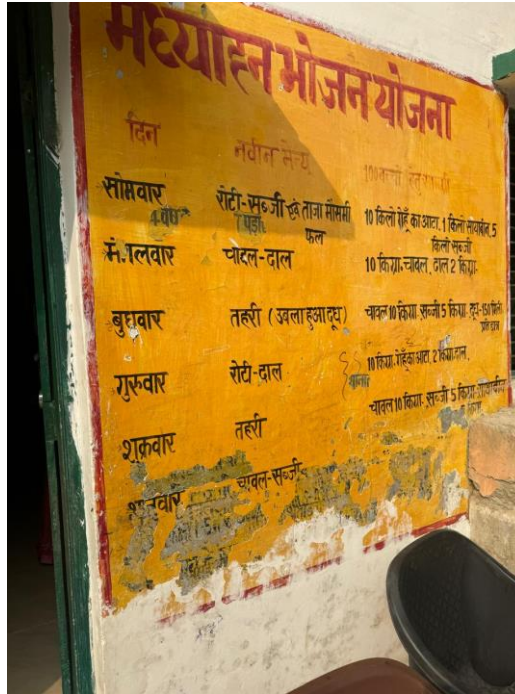 मध्याह्न भोजन योजना
दिन नवीन मेन्यू
सोमवार रोटी-सब्जी एवं ताजा मौसमी फल 10 किलो गेहूँ का आटा, 1 किलो सोयाबीन, 5 किलो सब्जी
मंगलवार चावल-दाल 10 किग्रा. चावल, दाल 2 किग्रा.
बुधवार तहरी (उबला हुआ दूध) चावल 10 किग्रा. सब्जी 5 किग्रा. दूध-150 मिली०
गुरुवार रोटी-दाल 10 किग्रा. गेहूँ का आटा, 2 किग्रा. दाल,
शुक्रवार तहरी चावल 10 किग्रा. सब्जी 5 किग्रा.
शनिवार चावल-सब्जी